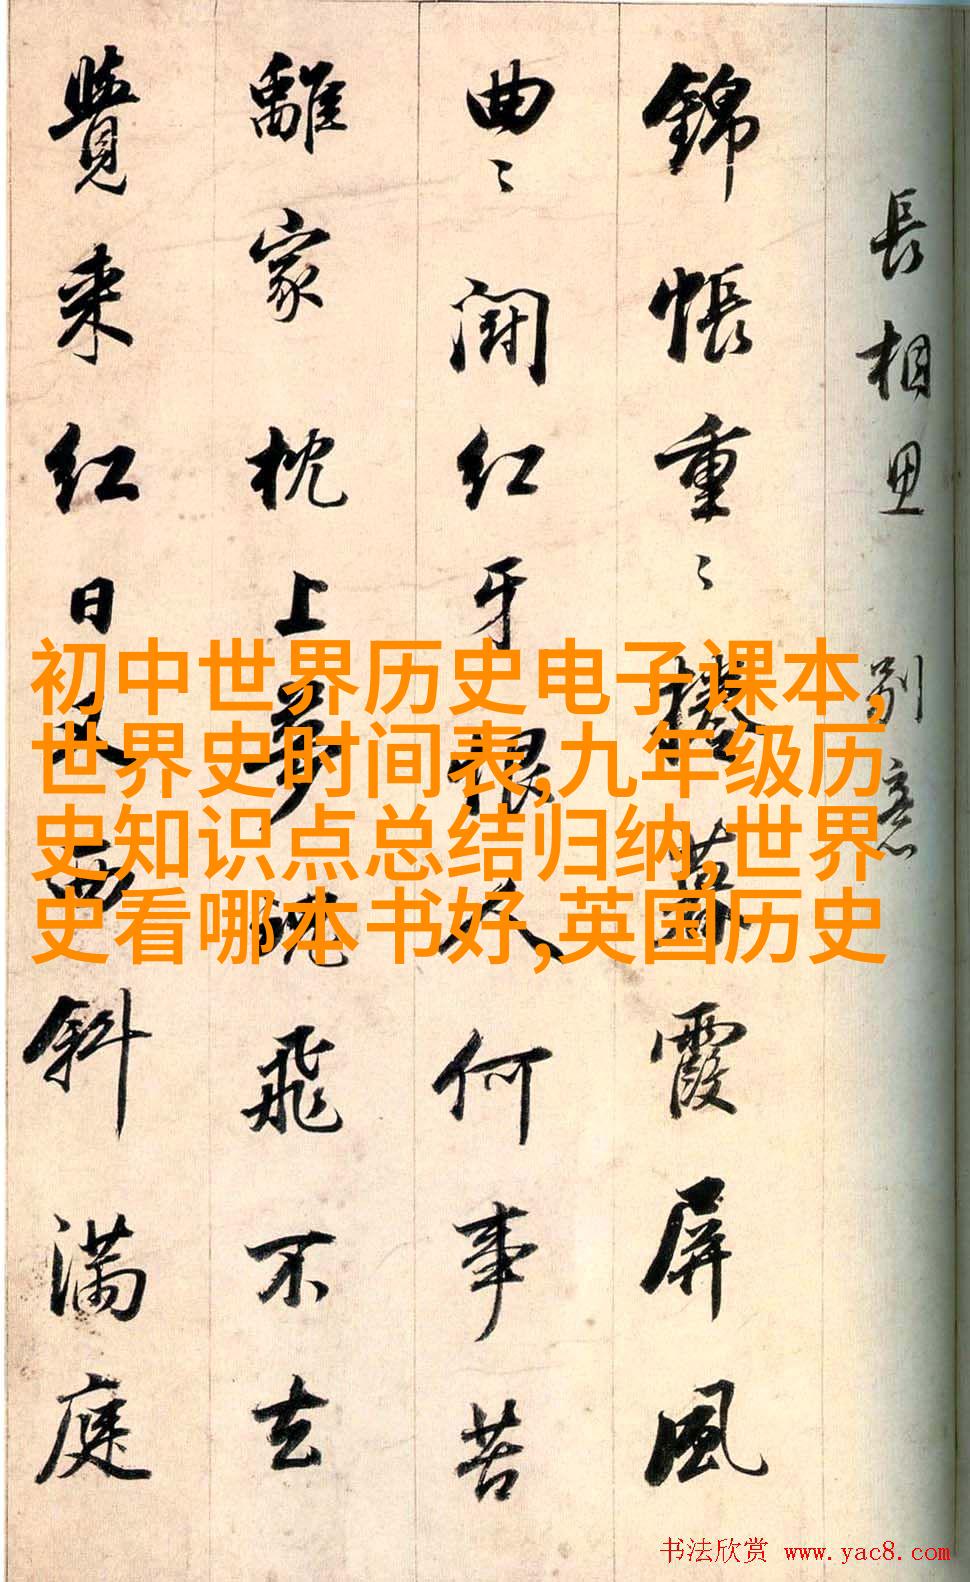 長相思 別意
錦帳重〻捲暮霞屏風
曲〻鬪紅牙恨人何事苦
離家枕上夢魂飛不去
覺來紅日又西斜滿庭
初中世界历史电子课本,
世界史时间表,九年级历
史知识点总结归纳,世界
史看哪本书好,英国历史
书法欣赏 www.yac8.com